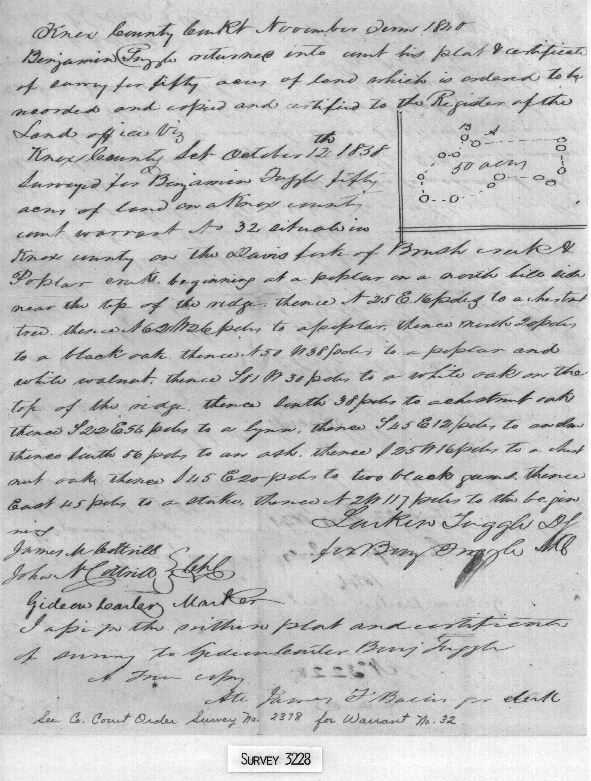 Knox County Court November Term 1840
Benjamin Tuggle returned into court his plat & certificate
of survey for fifty acres of land which is ordered to be
recorded and copied and certified to the Register of the
Land office Viz
B A
50 acres
Knox County Sct October 12th 1838
Surveyed for Benjamin Tuggle fifty
acres of land on a Knox county
court warrant No 32 situate in
Knox county on the Davis fork of Brush creek &
Poplar creek. beginning at a poplar on a north hill side
near the top of the ridge. thence N 25 E 16 poles to a chestnut
tree. thence N 62 W 26 poles to a poplar. thence north 20 poles
to a black oak. thence N 50 W 38 poles to a poplar and
white walnut. thence S 81 W 30 poles to a white oak on the
top of the ridge. thence South 38 poles to a chestnut oak
thence S 22 E 54 poles to a lynn. thence S 45 E 12 poles to
thence South 56 poles to an ash. thence S 25 W 16 poles to a chest
nut oak. thence S 45 E 20 poles to two black gums. thence
East 45 poles to a stake. thence N 2 W 117 poles to the begin
ing
Larkin Tuggle DS
for Benj Tuggle
James M Cottrill
John N Cottrill
Gideon Marker
I the within plat and certificate
of survey to Gideon Benj Tuggle
A True copy
James F for clerk
See Co. Court Order Survey No. 2378 for Warrant No. 32
SURVEY 3228